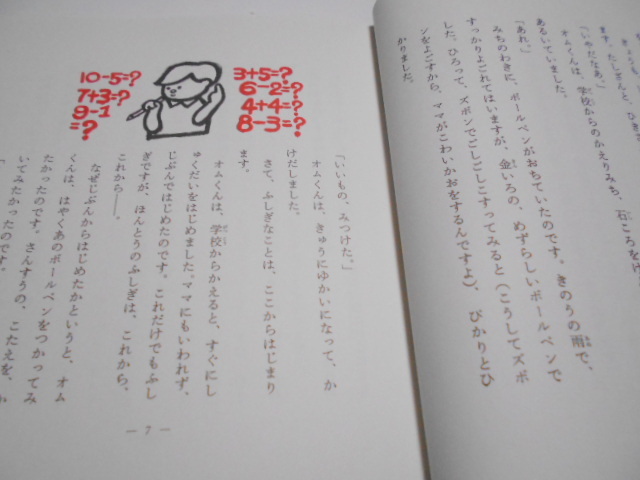 ます。たしざんと、ひき
「いやだなあ。」
オムくんは、学校からのかえりみち、石ころをけ
あるいていました。
「あれ。」
みちのわきに、ボールペンがおちていたのです。きのうの雨で、
すっかりよごれてはいますが、金いろの、めずらしいボールペンで
した。ひろって、ズボンでごしごしこすってみると（こうしてズボ
ンをよごすから、ママがこわいかおをするんですよ）、ぴかりとひ
かりました。
10-5=?
7+3=?
9-1
=?
3+5=?
6-2=?
4+4=?
8-3=?
「いいもの、みつけた。」
オムくんは、きゅうにゆかいになって、か
けだしました。
さて、ふしぎなことは、ここからはじまり
ます。
オムくんは、学校からかえると、すぐにし
ゅくだいをはじめました。ママにもいわれず、
じぶんではじめたのです。これだけでもふし
ぎですが、ほんとうのふしぎは、これから、
これから――。
なぜじぶんからはじめたかというと、オム
くんは、はやくあのボールペンをつかってみ
たかったのです。さんすうの、こたえを、か
いてみたかったのです。
— 7 —